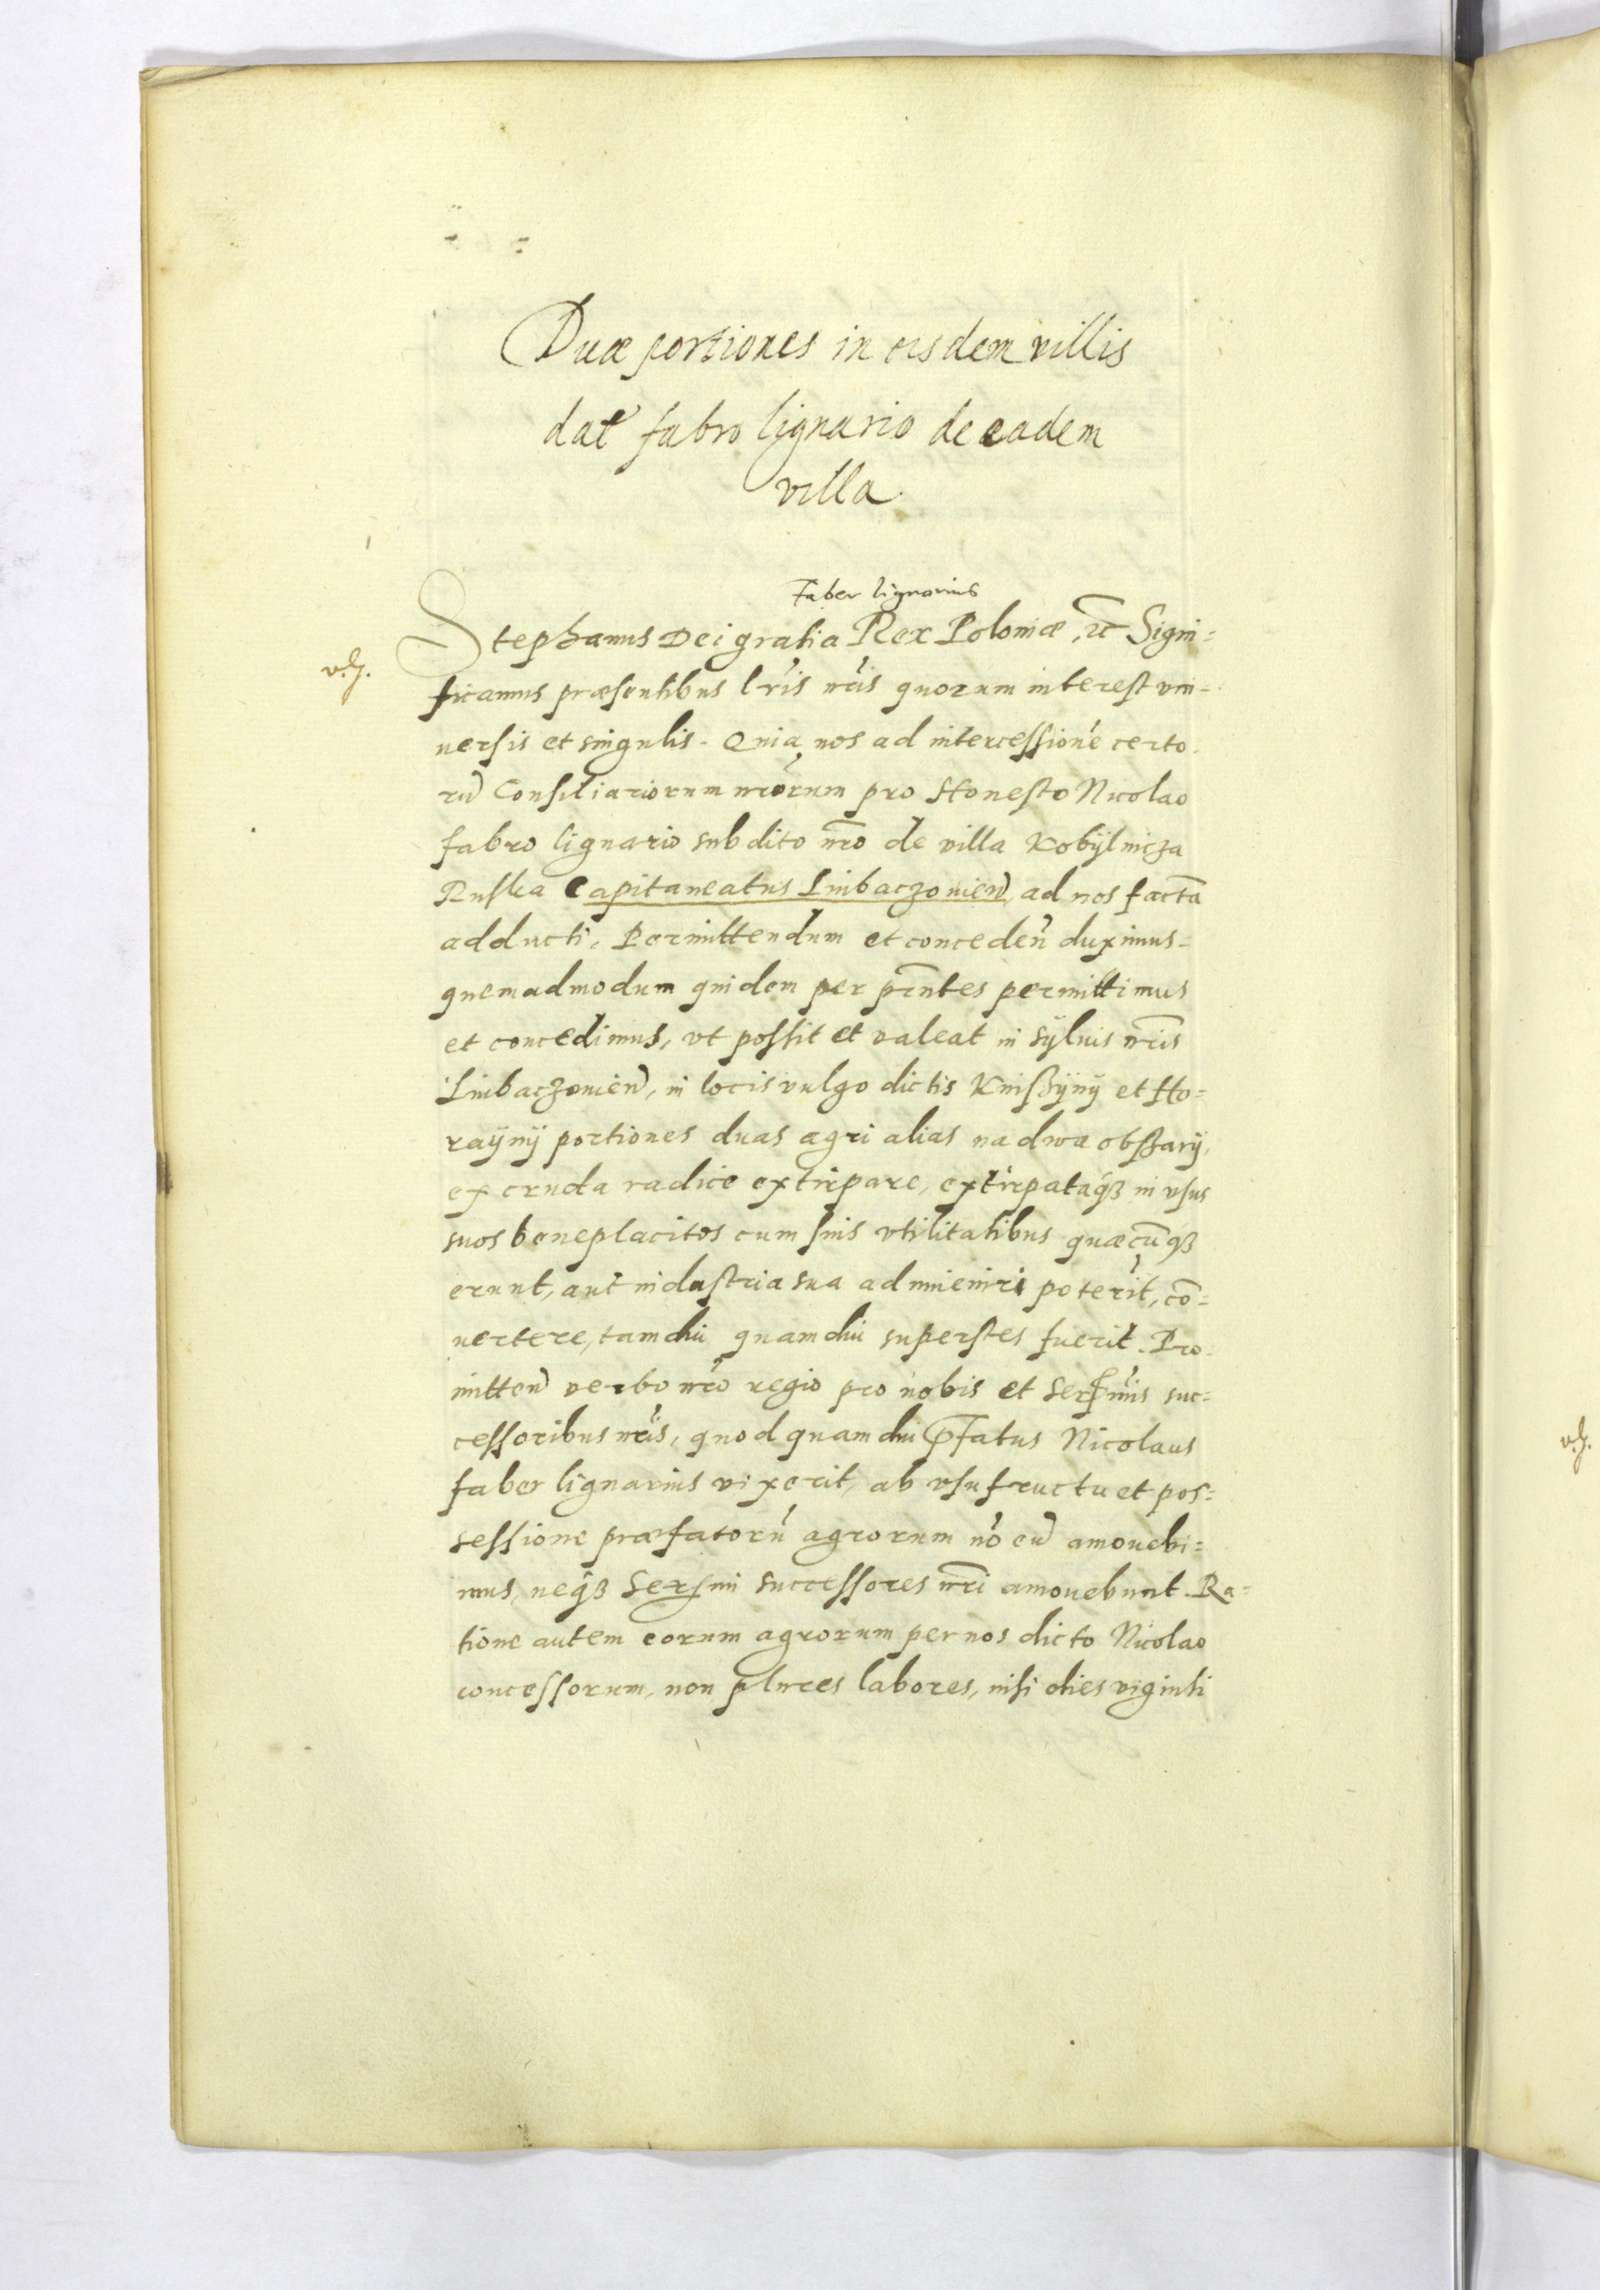 Duæ portiones in eisdem villis
dat fabro lignario de eadem
villa.
Faber lignarius
Stephanus Dei gratia Rex Poloniæ, ꝛc̄ Signi=
v.J.
ficamus præsentibus lr̃is nr̃is quorum interest vni=
uersis et singulis. Quia nos ad intercessionē certo.
rū Consiliariorum nr̃orum pro Honesto Nicolao
fabro lignario subdito nr̃o de villa Kobÿlnicza
Ruska Capitaneatus Liubaczouien̄ ad nos factā
adducti, Permittendum et conceden̄ duximus=
quemadmodum quidem per pn̄tes permittimus
et concedimus, vt possit et valeat in sÿluis nr̃is
Liubaczouien̄, in locis vulgo dictis Knißÿnÿ et Ho=
raÿnÿ portiones duas agri alias na dwa obßarÿ,
ex cruda radice extirpare, extirpataq̃ꝫ in vsus
suos beneplacitos cum suis vtilitatibus quæcūqꝫ
erunt, aut industria sua adinueniri poterīt, cō=
uertere, tamdiu quamdiu superstes fuerit. Pro.
mitten̄ verbo nr̃o regio pro nobis et Serß̃mis suc=
cessoribus nr̃is, quod quamdiu p̄fatus Nicolaus
faber lignarius vixerit, ab vsufructu et pos=
sessione præfatorū agrorum nō eū amouebi=
mus, neq̃ꝫ Sersmi successores nr̃i amouebunt. Ra=
tione autem eorum agrorum per nos dicto Nicolao
concessorum, non plures labores, nisi dies viginti
v.J.